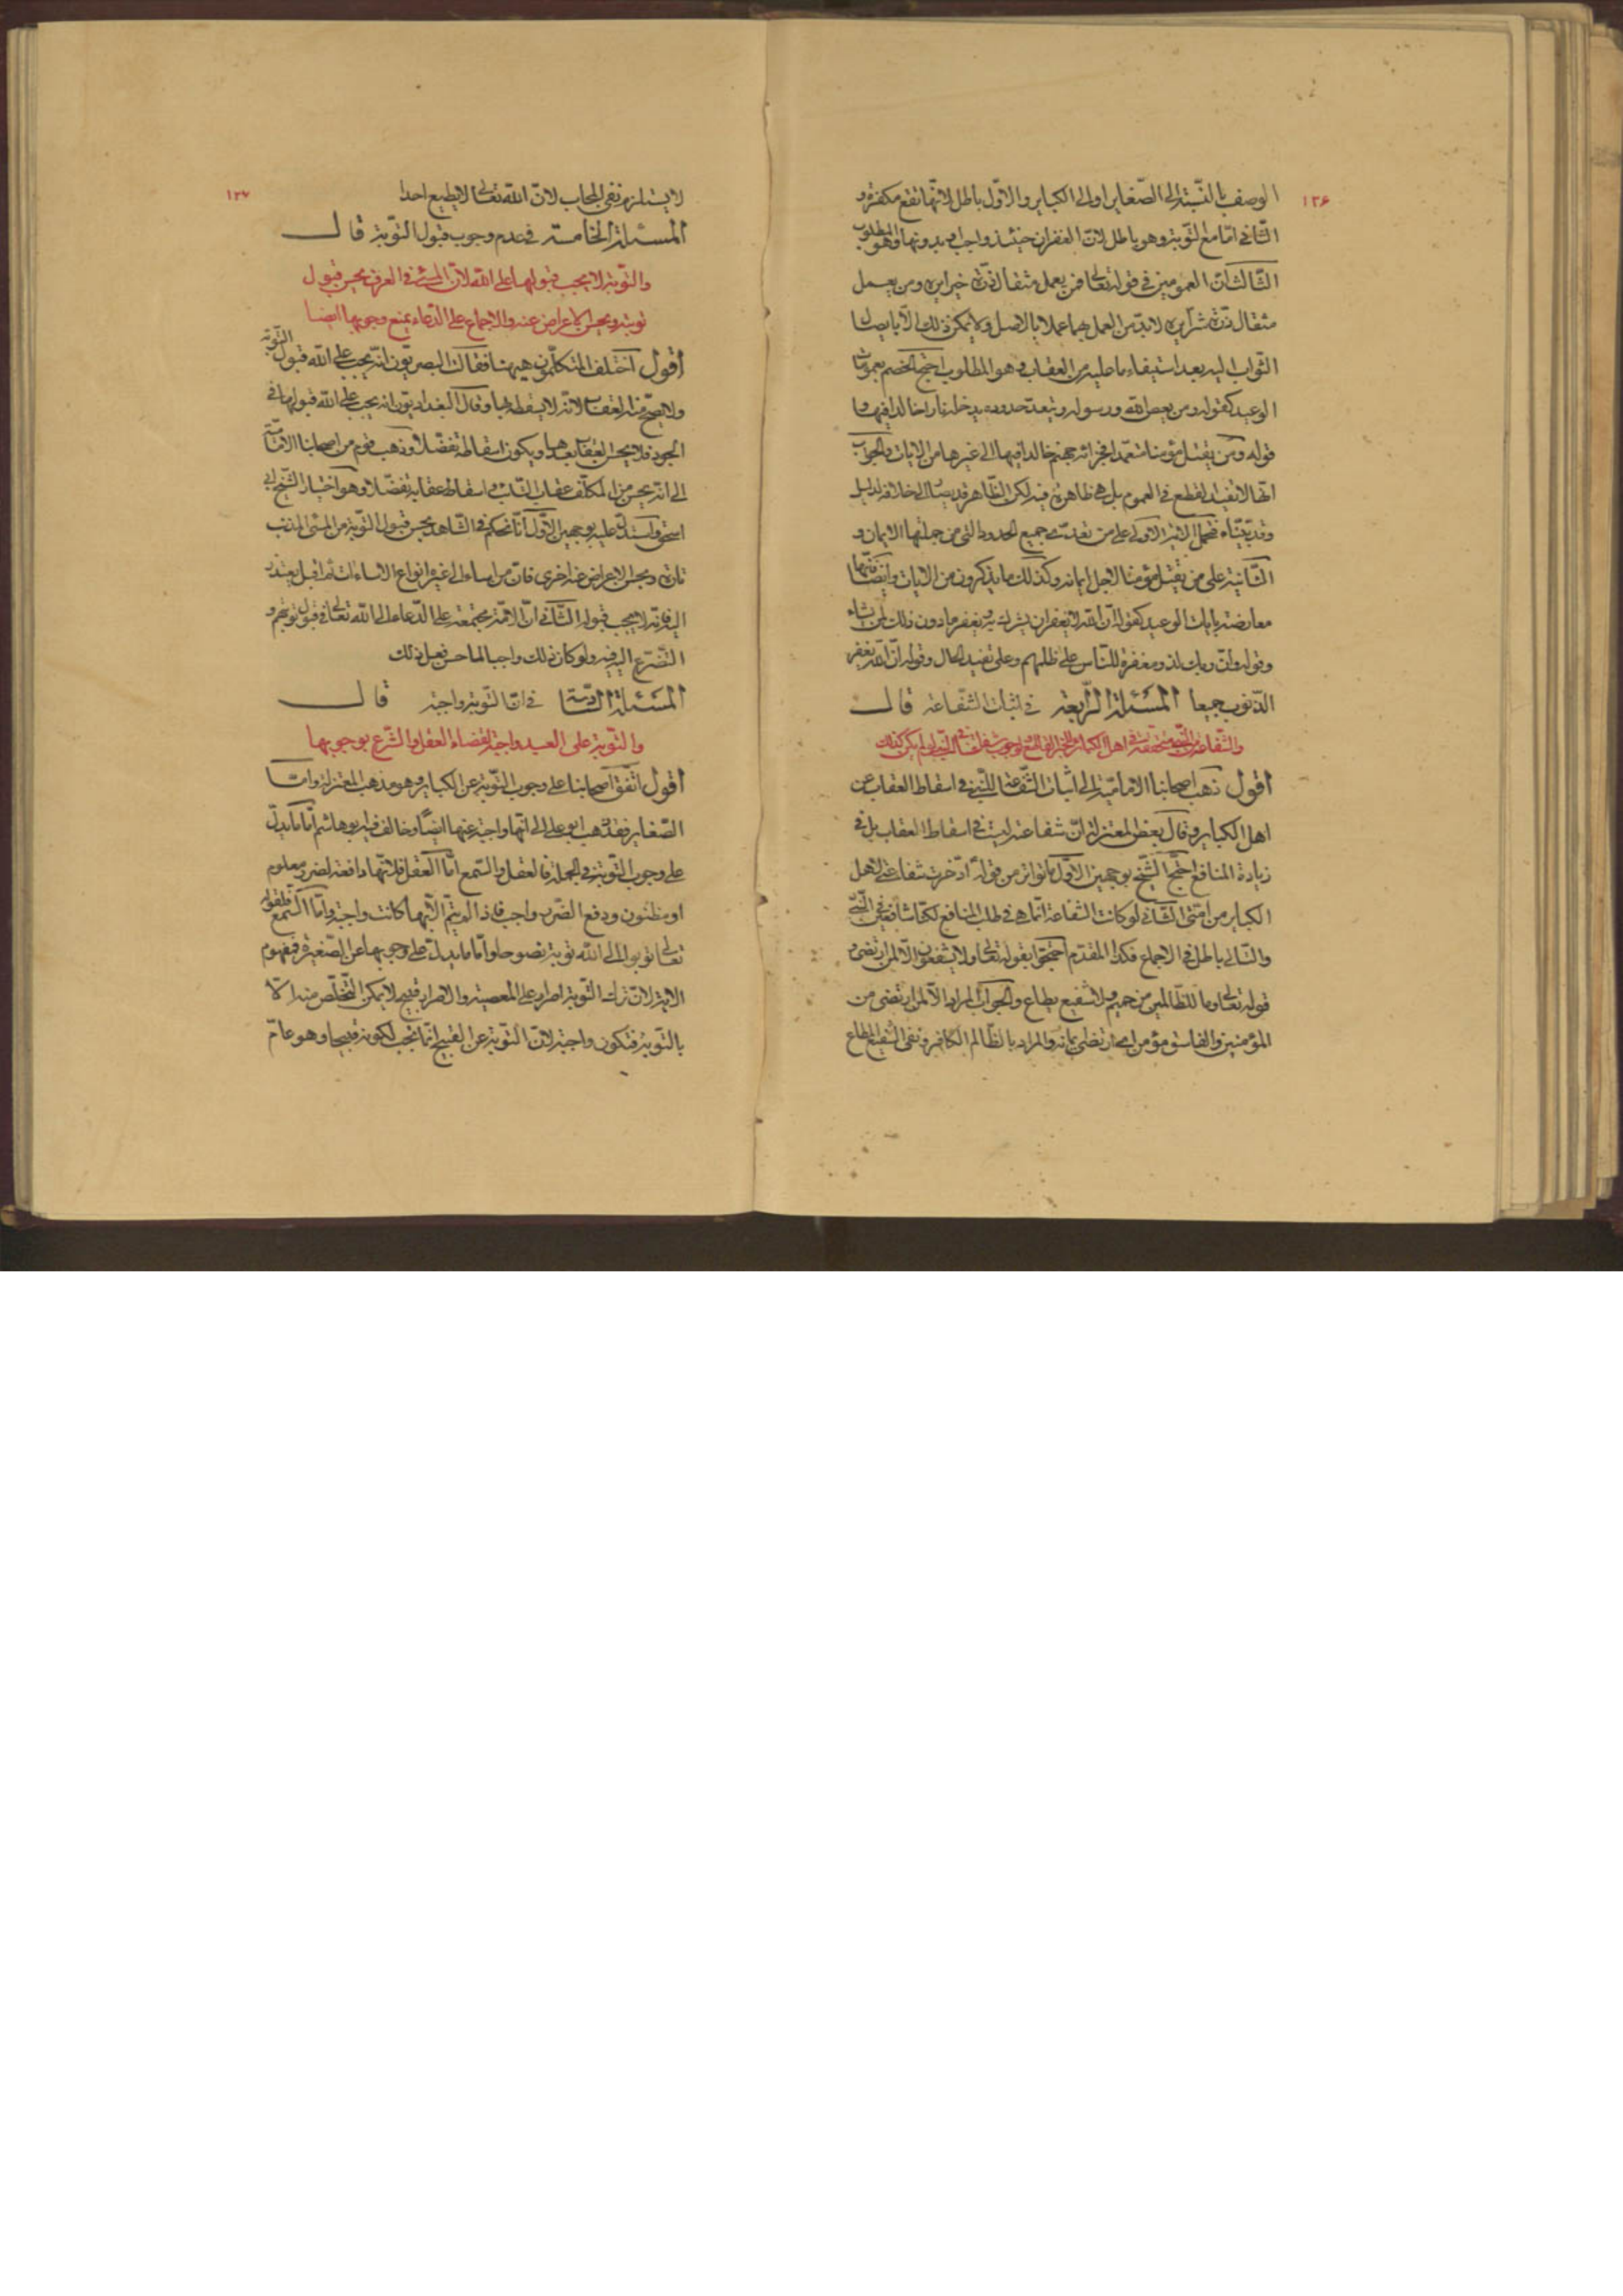 ١٣۶
الوصف بالنسبة الى الصغاير او الى الكباير والاول باطل لانها تقع مكفرة و
الثانى اما مع التوبة وهو باطل لان الغفران حينئذ واجب او بدونها وهو المطلوب
الثالث ان العمومين فى قوله تعالى فمن يعمل مثقال ذرة خيرا يره ومن يعمل
مثقال ذرة شرا يره لابد من العمل بهما عملا بالاصل ولا يمكن ذلك الا بايصال
الثواب اليه بعد استيفاء ما عليه من العقاب وهو المطلوب احتج الخصم بعمومات
الوعيد كقوله ومن يعص الله ورسوله ويتعد حدوده يدخله نارا خالدا فيها و
قوله ومن يقتل مؤمنا متعمدا فجزائه جهنم خالدا فيها الى غيرها من الايات والجواب
انها لا تفيد القطع فى العموم بل هى ظاهرة فيه لكن الظاهر قد يصار الى خلافه لدليل
وقد بيناه فتحمل الاية الاولى على من تعدى جميع الحدود التى من جملتها الايمان و
الثانية على من يقتل مؤمنا لاجل ايمانه وكذلك ما يذكرونه من الايات وايضا فانها
معارضة بايات الوعد كقوله ان الله لا يغفر ان يشرك به ويغفر ما دون ذلك لمن يشاء
وقوله وان ربك لذو مغفرة للناس على ظلمهم وعلى تفيد الحال وقوله ان الله يغفر
الذنوب جميعا المسئلة الرابعة فى اثبات الشفاعة قال
اقول ذهب اصحابنا الامامية الى اثبات الشفاعة للنبى فى اسقاط العقاب عن
اهل الكباير وقال بعض المعتزلة ان شفاعته ليست فى اسقاط العقاب بل فى
زيادة المنافع احتج الشيخ بوجهين الاول ما تواتر من قوله ادخرت شفاعتى لاهل
الكباير من امتى الثانى لو كانت الشفاعة انما هى فى طلب المنافع لكنا شافعين فى النبى
والتالى باطل بالاجماع فكذا المقدم احتجوا بقوله تعالى ولا يشفعون الا لمن ارتضى و
قوله تعالى وما للظالمين من حميم ولا شفيع يطاع والجواب المراد الا لمن ارتضى من
المؤمنين والفاسق مؤمن ارتضى ايمانه والمراد بالظالم الكافر ونفى الشفيع المطاع
١٣٧
لا يستلزم نفى المجاب لان الله تعالى لا يطيع احدا
المسئلة الخامسة فى عدم وجوب قبول التوبة قال
والتوبة لا يجب قبولها على الله لان المسئ فى العرف يحسن قبول
توبته ويحسن الاعراض عنه والاجماع على الدعاء يمنع وجوبها ايضا
اقول اختلف المتكلمون هيهنا فقالت البصريون انه يجب على الله قبول التوبة
ولا يصح منه العقاب لانه لا يسقط بها وقال البغداديون انه يجب على الله قبولها فى
الجود فلا يحسن العقاب بعدها ويكون اسقاطه تفضلا وذهب قوم من اصحابنا الامامية
الى انه يحسن من المكلف عقاب التائب واسقاط عقابه تفضلا وهو اختيار الشيخ ابى
اسحق واستدل عليه بوجهين الاول انا نحكم فى الشاهد بحسن قبول التوبة من المسئ المذنب
تارة وبحسن الاعراض عنه اخرى فان من اساء الى غيره انواع الاساءات ثم اقبل يعتذر
اليه فانه لا يجب قبوله الثانى ان الامة مجتمعة على الدعاء الى الله تعالى فى قبول توبتهم و
التضرع اليه فيه ولو كان ذلك واجبا لما حسن فعل ذلك
المسئلة السادسة فى ان التوبة واجبة قال
والتوبة على العبد واجبة لقضاء العقل والشرع بوجوبها
اقول اتفق اصحابنا على وجوب التوبة عن الكباير وهو مذهب المعتزلة واما
الصغاير فقد ذهب ابو على الى انها واجبة عنها ايضا وخالف فيه ابو هاشم اما ما يدل
على وجوب التوبة فى الجملة فالعقل والسمع اما العقل فلانها دافعة لضرر معلوم
او مظنون ودفع الضرر واجب فاذا لم يتم الا بها كانت واجبة واما السمع فلقوله
تعالى توبوا الى الله توبة نصوحا واما ما يدل على وجوبها عن الصغيرة فمفهوم
الاية لان ترك التوبة اصرار على المعصية والاصرار قبيح لا يمكن التخلص منه الا
بالتوبة فتكون واجبة لان التوبة عن القبيح انما تجب لكونه قبيحا وهو عام